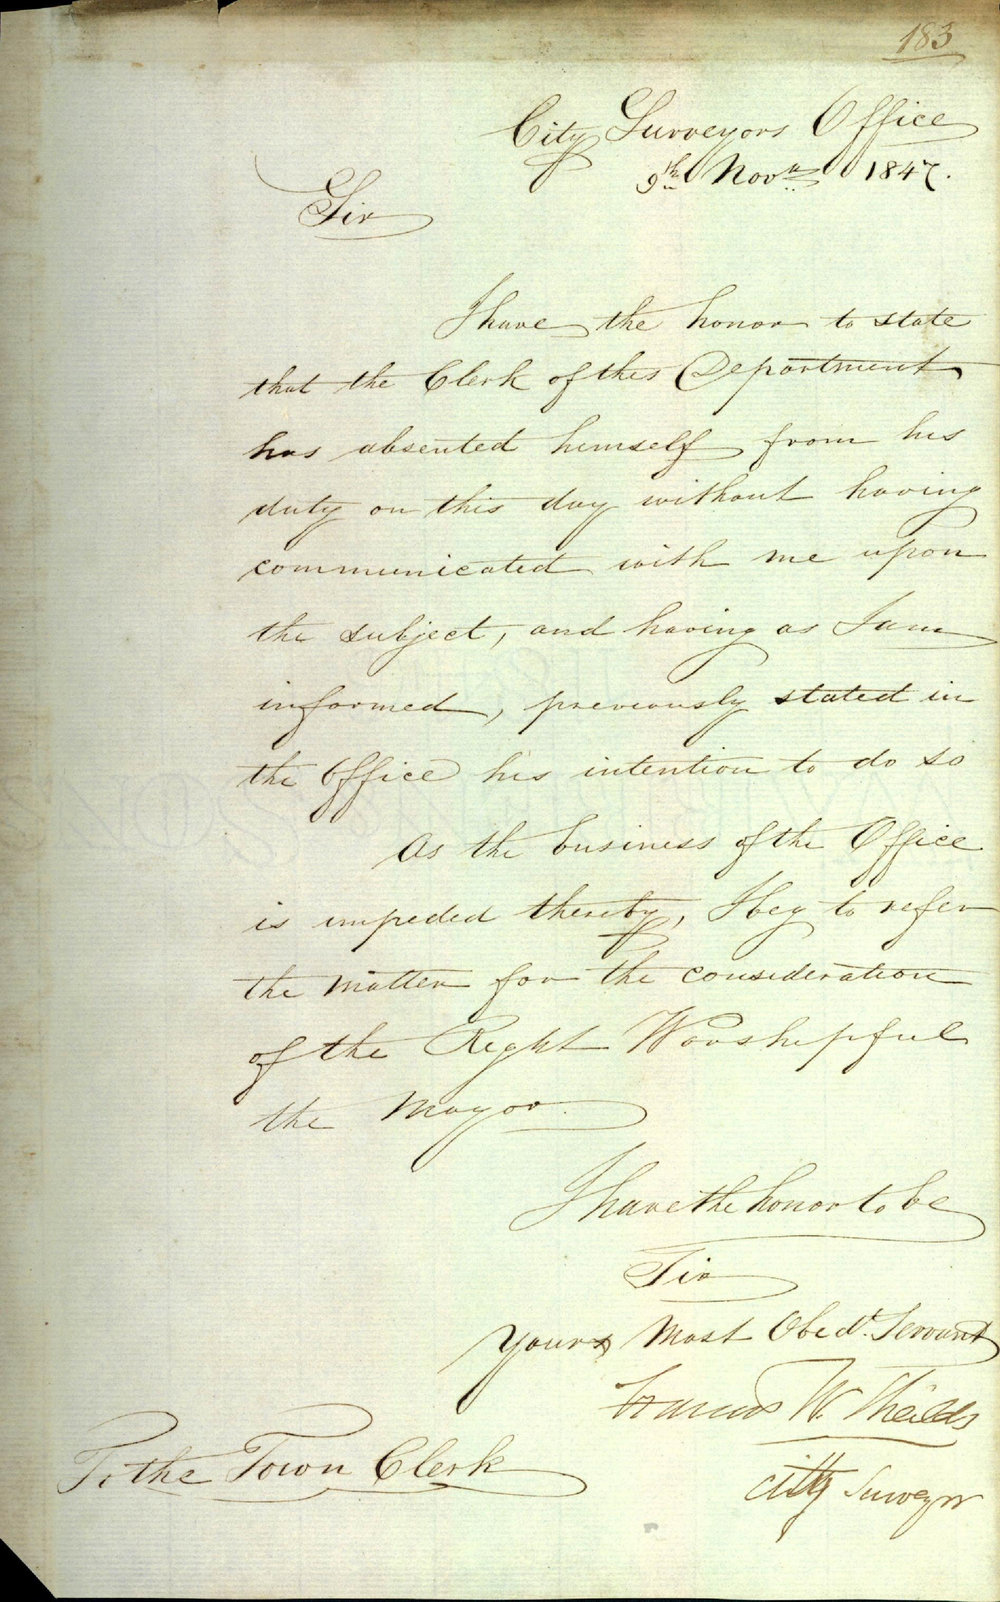 183
City Surveyors Office
9th Novr 1847.
Sir
I have the honor to state
that the Clerk of this Department
has absented himself from his
duty on this day without having
communicated with me upon
the subject, and having as I am
informed, previously stated in
the Office his intention to do so
As the business of the Office
is impeded thereby, I beg to refer
the matter for the consideration
of the Right Worshipful
the Mayor.
I have the honor to be
Sir
Yours Most Obedt. Servant
Francis W. Sheilds
City Surveyor
To the Town Clerk